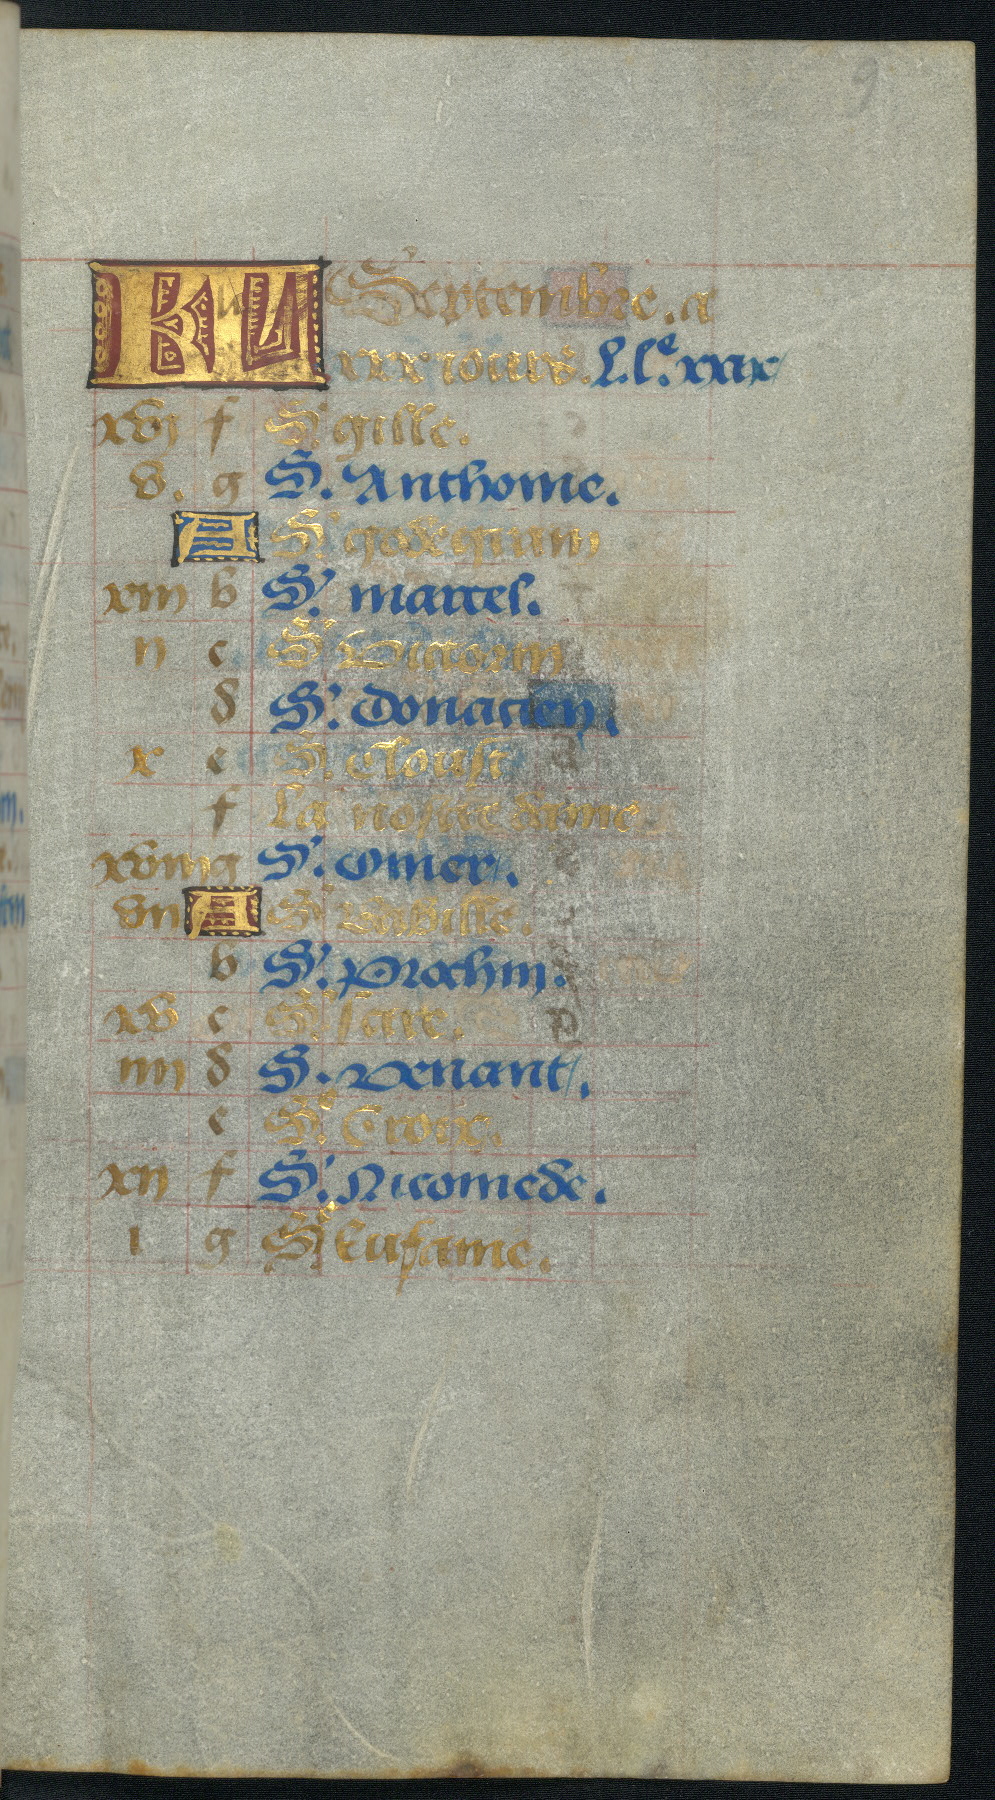 9
KL Septembre. a
xxx iours. L.l.e xxix
xvj f S. gille.
v. g S. Anthoine.
A S. godegram
xiii b S. marcel.
ii c S. Victorin
d S. donacien.
x e S. Cloust
f La nostre dame.
xviii g S. omer.
vii A S. Babille.
b S. prothin.
xv c S.
iiii d S. venant.
e S. Croix.
xii f S. Nicomede.
i g S. Eufame.